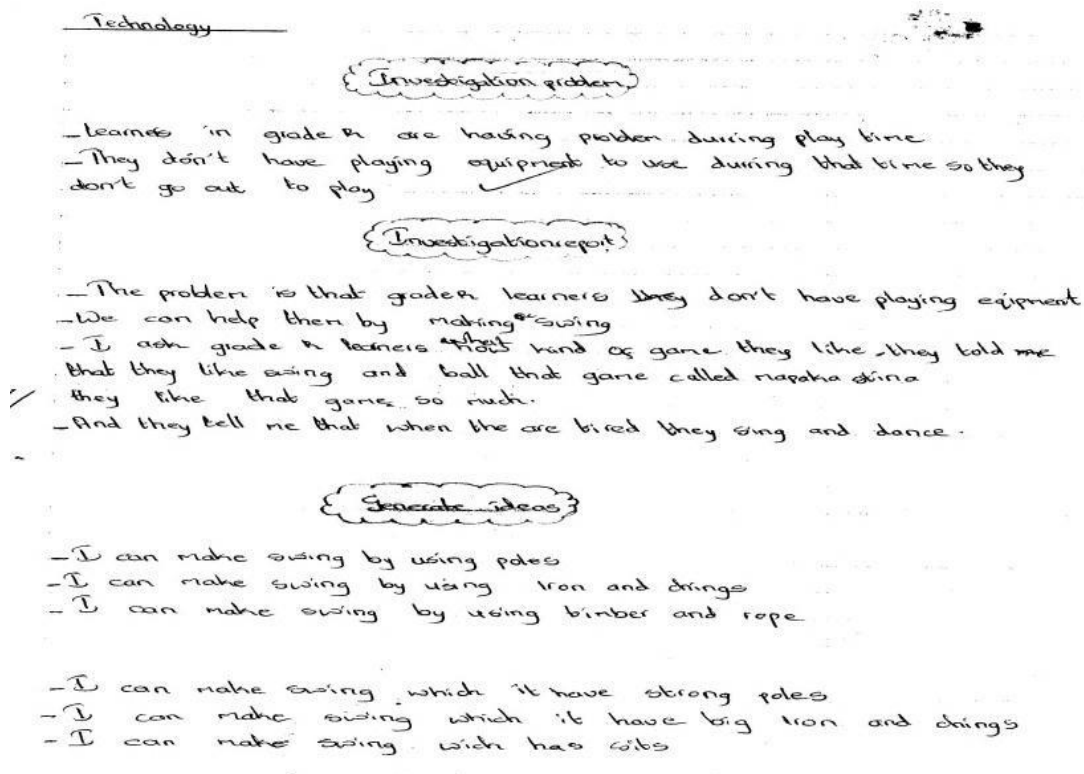 Technology
Investigation problem
- Learnes in grade R are having problem durring play time
- They don't have playing equipment to use durring that time so they
don't go out to play
Investigation report
- The problem is that grade R learners they don't have playing eqipment
- We can help them by making swing
- I ask grade R learners what kind of game they like - they told me
that they like swing and ball that game called mapaka stina
they like that game so much.
- And they tell me that when the are tired they sing and dance.
Generate ideas
- I can make swing by using poles
- I can make swing by using Iron and chings
- I can make swing by using timber and rope
- I can make swing which it have strong poles
- I can make swing which it have big Iron and chings
- I can make swing wich has sits